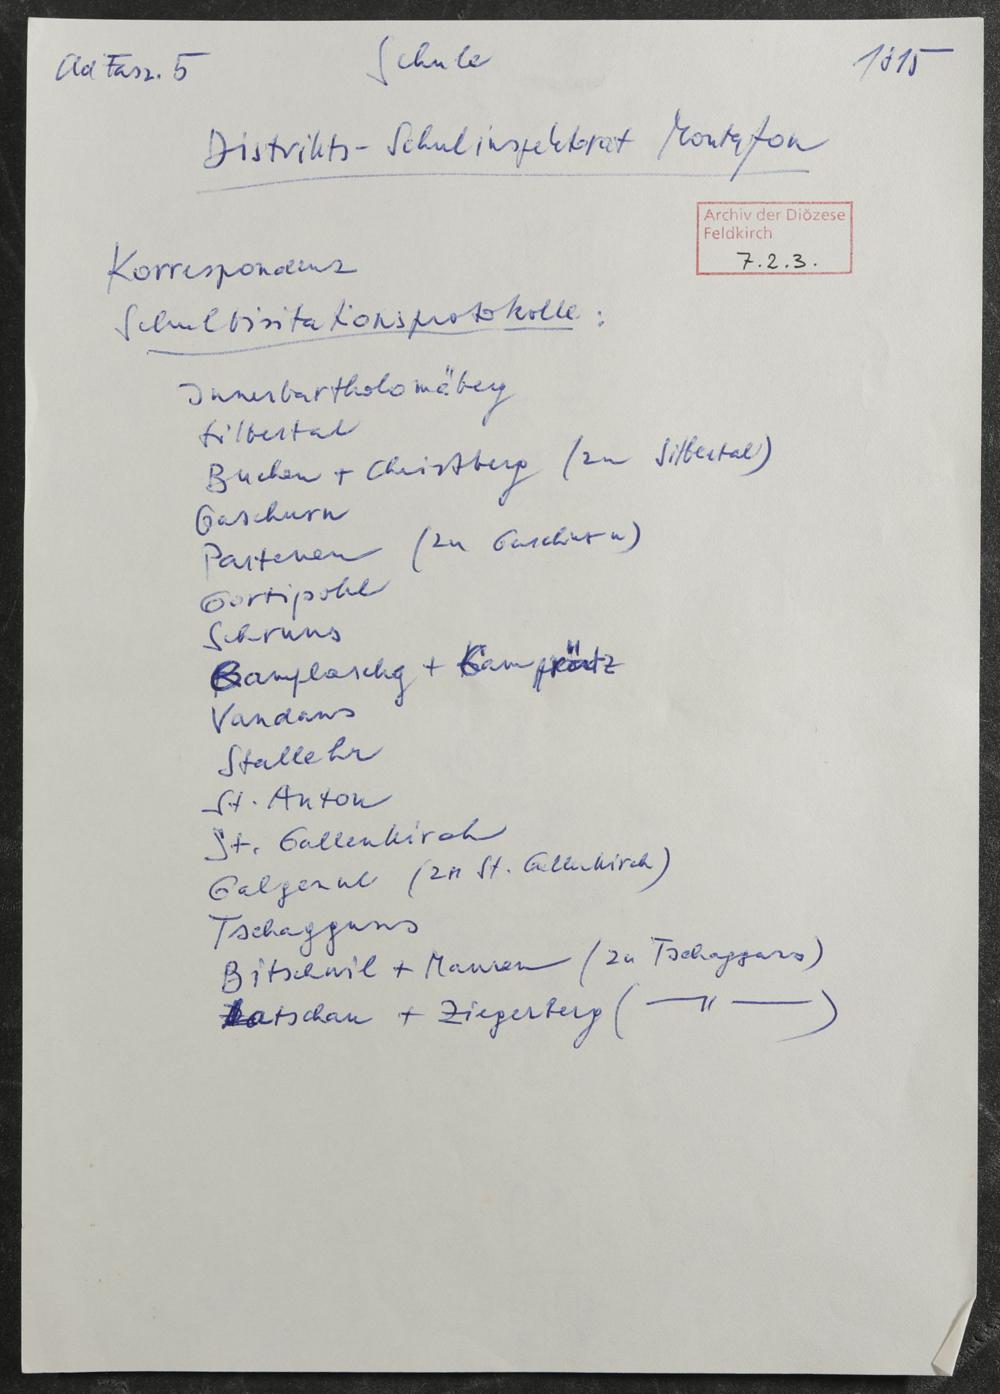 Ad Fasz. 5 Schule 1815
Distrikts-Schulinspektorat Montafon
Archiv der Diözese
Feldkirch
7.2.3.
Korrespondenz
Schulvisitationsprotokolle:
Innerbartholomäberg
Silbertal
Buchen + Christberg (zu Silbertal)
Gaschurn
Partenen (zu Gaschurn)
Gortipohl
Schruns
Gamplaschg + Gamprätz
Vandans
Stallehr
St. Anton
St. Gallenkirch
Galgenul (zu St. Gallenkirch)
Tschagguns
Bitschwil + Mauren (zu Tschagguns)
Latschau + Ziegerberg ( — " — )